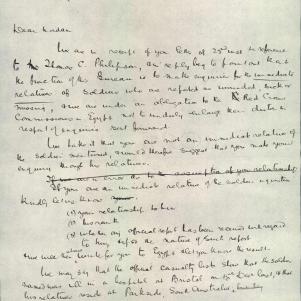 Dear Madam
We are in receipt of your letter of 25th inst in reference
to Thomas C. Philipson, in reply beg to point out that
the function of this Bureau is to make enquiries for the immediate
relatives of Soldiers who are reported as wounded, sick or
missing, and we are under an obligation to the Red Cross
Commissioners in Egypt not to unduly enlarge their duties in
respect of enquiries sent forward.
We take it that you are not an immediate relative of
the Soldier mentioned, would therefore suggest that you make your
enquiry through his relatives.
If you are an immediate relative of the soldier in question
kindly let us know
(1) your relationship to him
(2) his rank
(3) whether any official report has been received with regard
to him, & if so the nature of such report
and we will then cable for you to Egypt & let you know the result.
We may say that the official casualty lists show that the soldier
named was ill in a hospital at Bristol on 15th Dec last, & that
his relatives reside at Parkside, South Australia,